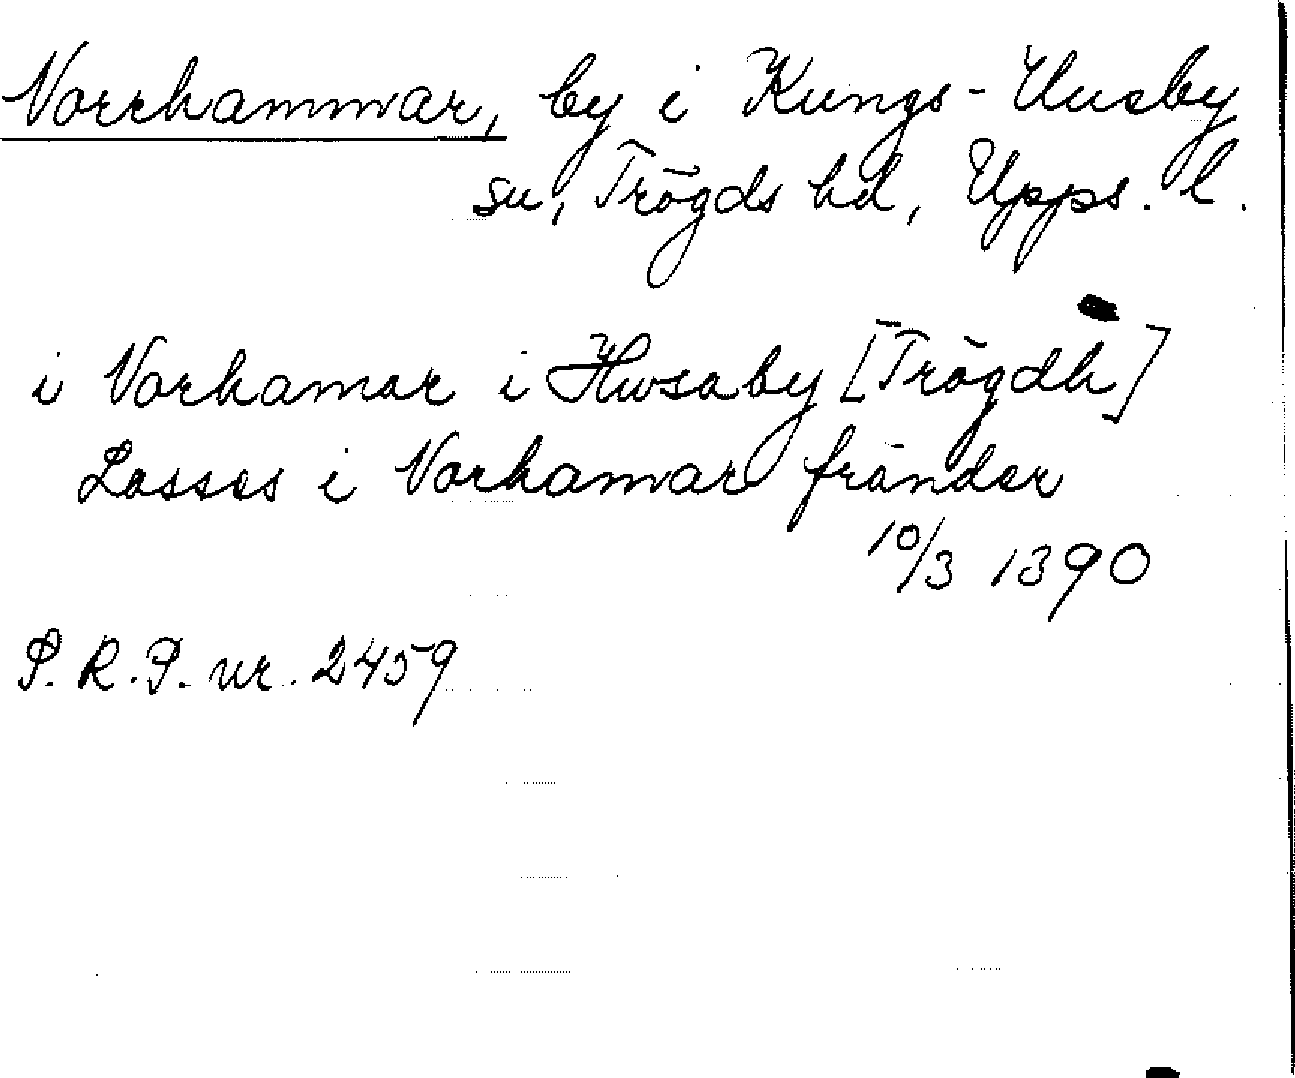 Vorrhammar, by i Kungs-Husby
sn, Trögds hd, Upps. l.
i Vorhamar i Hwsaby [Trögdh]
Lasses i Vorhamar fränder
10/3 1390
S.R.P. nr. 2459